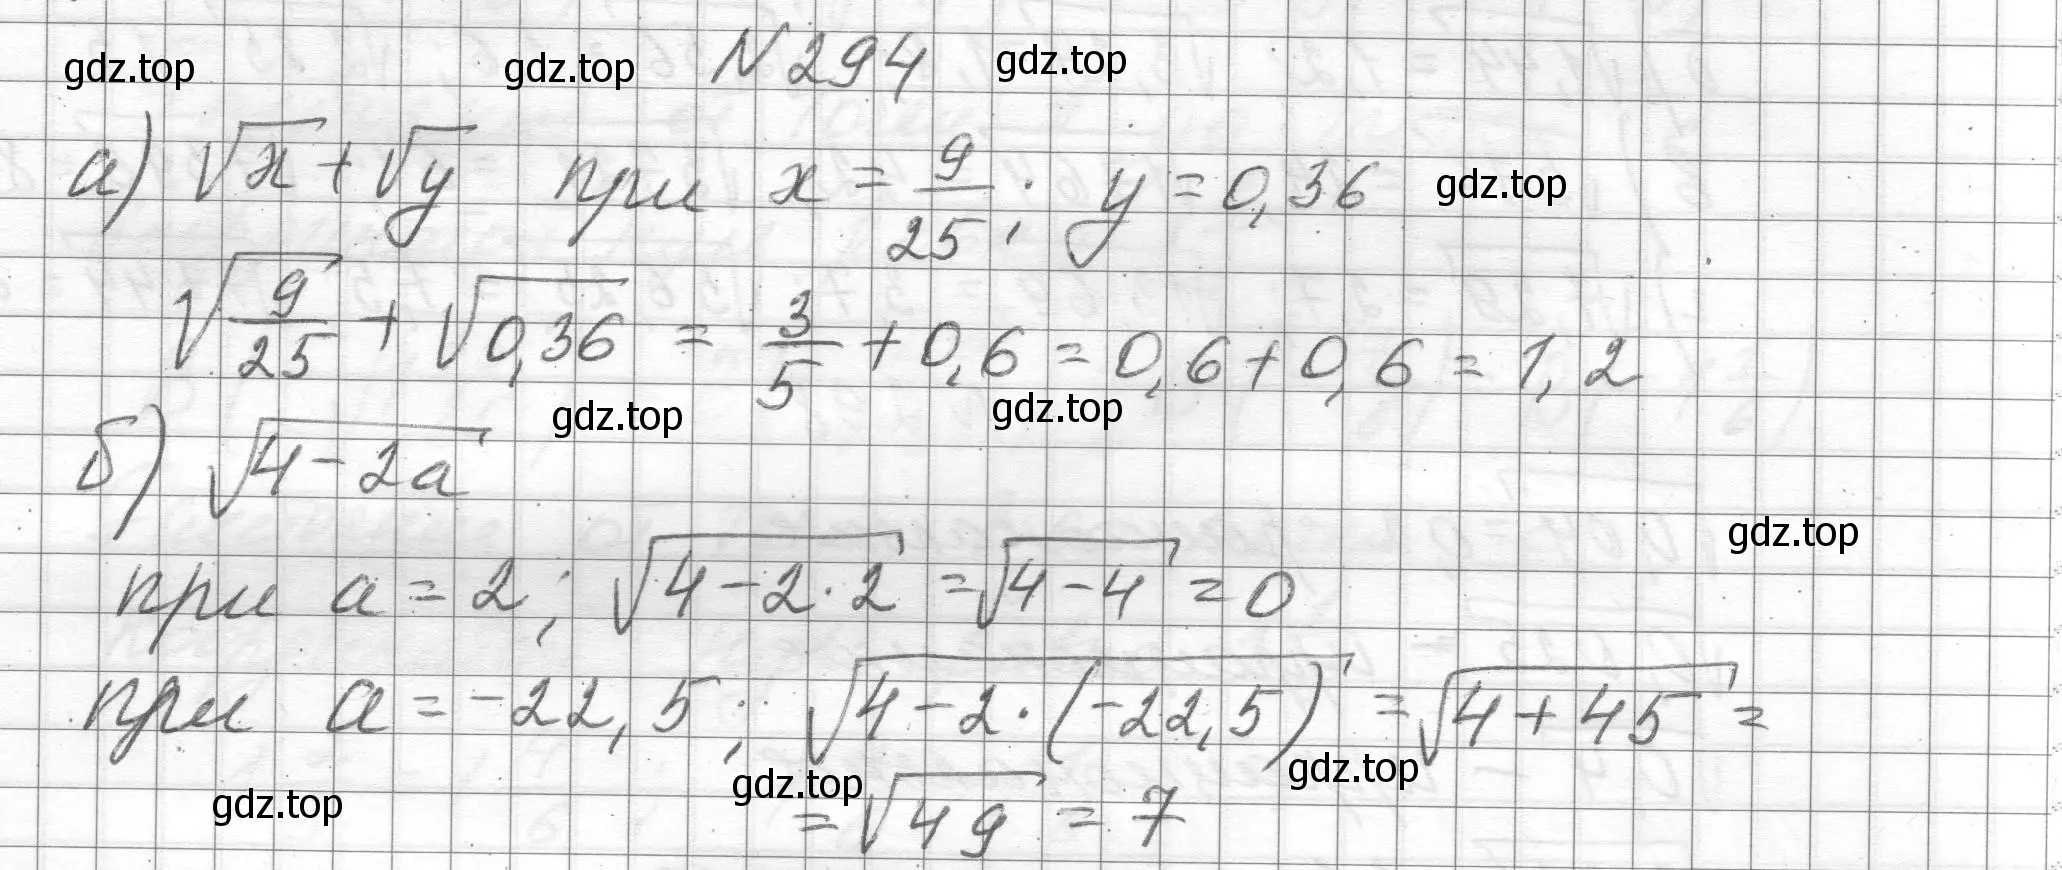 gdz.top gdz.top N 294 gdz.top
а) √x + √y при x = 9/25; y = 0,36 gdz.top
√(9/25) + √0,36 = 3/5 + 0,6 = 0,6 + 0,6 = 1,2
gdz.top gdz.top
б) √(4 - 2a)
gdz.top
при a = 2; √(4 - 2·2) = √(4 - 4) = 0
при a = -22,5; √(4 - 2·(-22,5)) = √(4 + 45) =
gdz.top gdz.top gdz.top
= √49 = 7